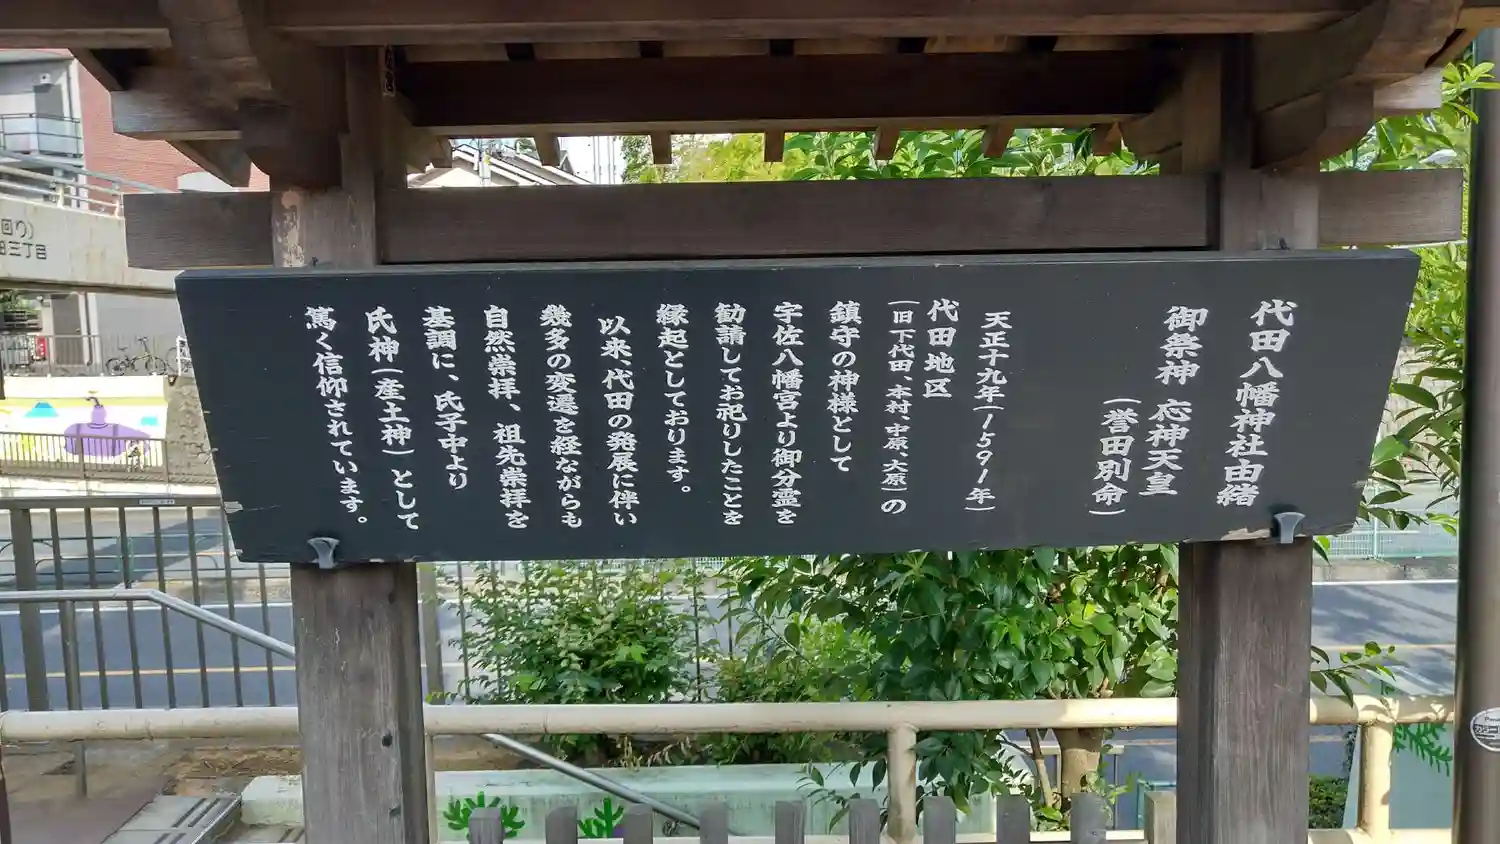 代田八幡神社由緒
御祭神 応神天皇
(誉田別命)
天正十九年(1591年)
代田地区
(旧下代田、本村、中原、大原)の
鎮守の神様として
宇佐八幡宮より御分霊を
勧請してお祀りしたことを
縁起としております。
以来、代田の発展に伴い
幾多の変遷を経ながらも
自然崇拝、祖先崇拝を
基調に、氏子中より
氏神(産土神)として
篤く信仰されています。
回り)
田三丁目